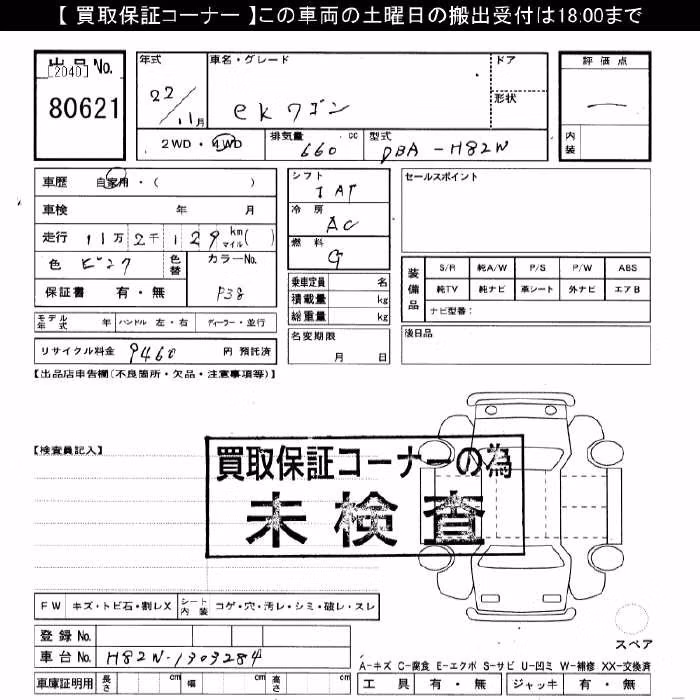 【 買取保証コーナー 】この車両の土曜日の搬出受付は18:00まで
出品No.
[2040]
80621
年式
22/11月
車名・グレード
ekワゴン
ドア
形状
評価点
—
内装
2WD・4WD
排気量 660 cc
型式 DBA-H82W
車歴 自家用・( )
車検 年 月
走行 11万2千129 km マイル( )
色 ピンク 色替
カラーNo. P38
保証書 有・無
シフト
IAT
冷房
AC
燃料
G
乗車定員 名
積載量 kg
総重量 kg
セールスポイント
装備品
S/R 純A/W P/S P/W ABS
純TV 純ナビ 革シート 外ナビ エアB
ナビ型番:
モデル年式 年 ハンドル 左・右 ディーラー・並行
名変期限
月 日
後日品
リサイクル料金 9460 円 預託済
【出品店申告欄(不良箇所・欠品・注意事項等)】
【検査員記入】
買取保証コーナーの為
未検査
FW キズ・トビ石・割レX シート内装 コゲ・穴・汚レ・シミ・破レ・スレ
登録No.
車台No. H82W-1303284
スペア
A-キズ C-腐食 E-エクボ S-サビ U-凹ミ W-補修 XX-交換済
車庫証明用 長さ cm 幅 cm 高さ cm
工具 有・無 ジャッキ 有・無